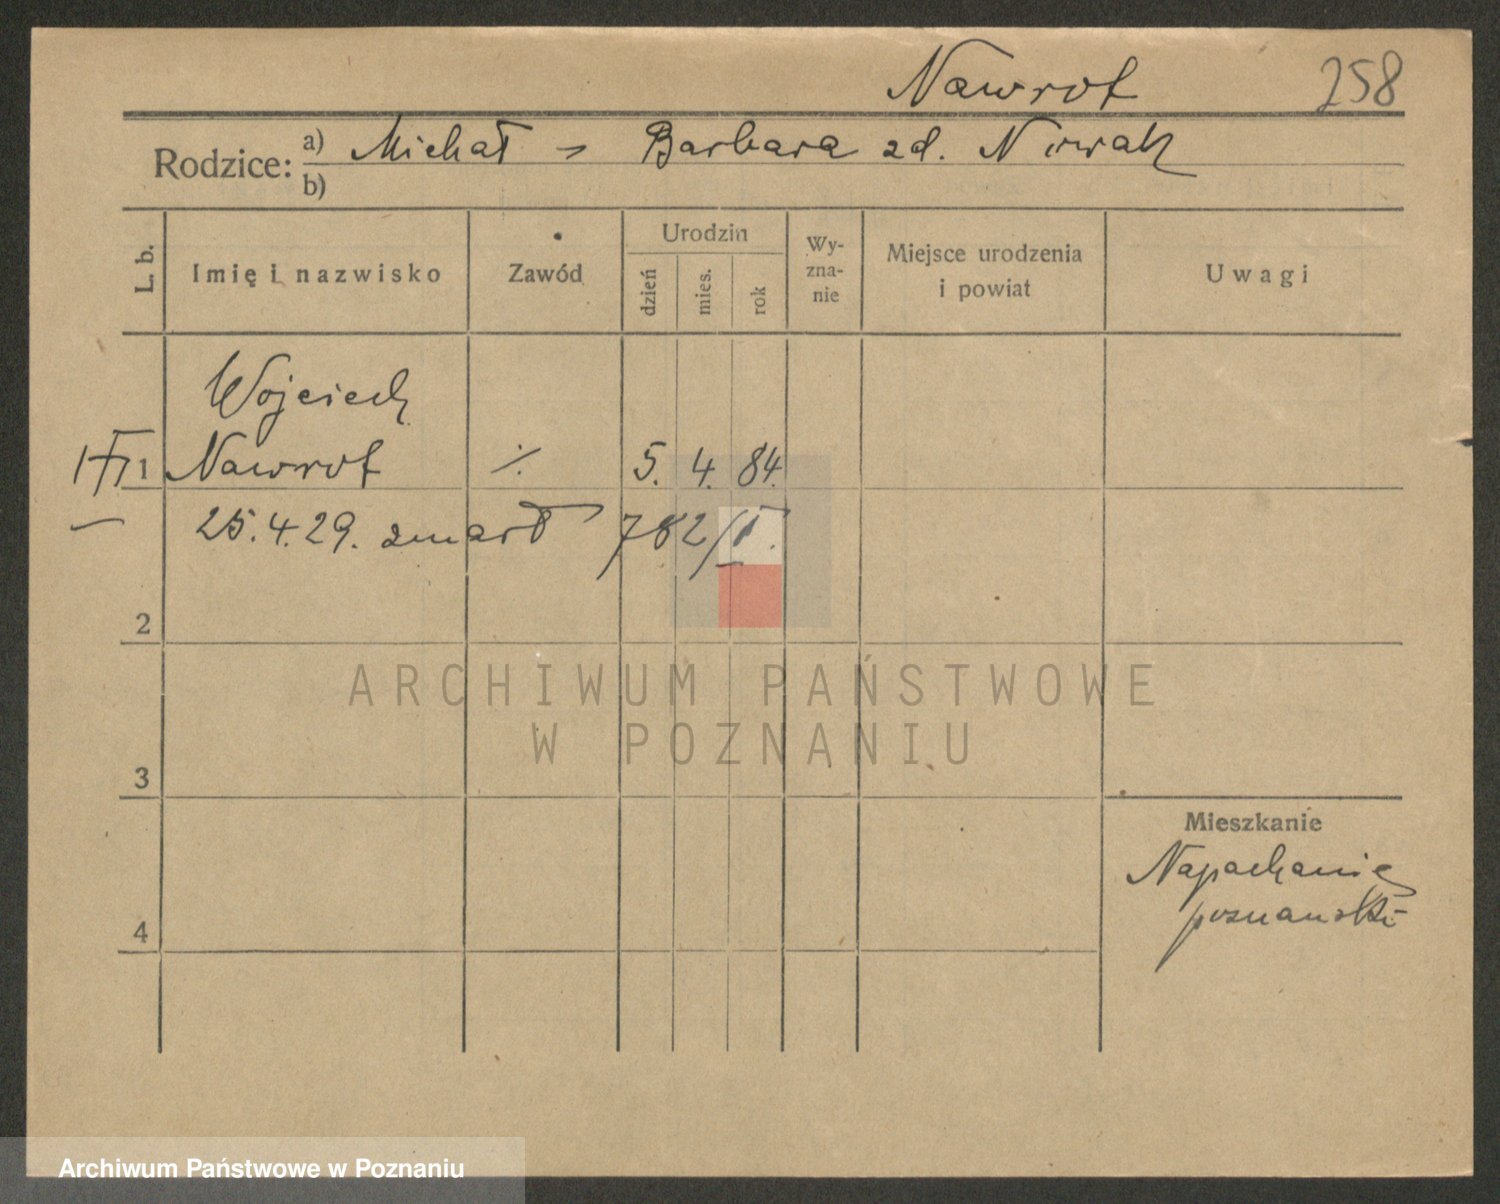 Nawrot 258
Rodzice: a) Michał - Barbara zd. Nowak
b)
L. b. Imię i nazwisko Zawód Urodzin dzień mies. rok Wy-zna-nie Miejsce urodzenia i powiat Uwagi
Wojciech
1 Nawrot ·/. 5. 4. 84.
25.4.29. zmarł 782/I.
2
ARCHIWUM PAŃSTWOWE
W POZNANIU
3
Mieszkanie
Napachanie
poznański
4
Archiwum Państwowe w Poznaniu